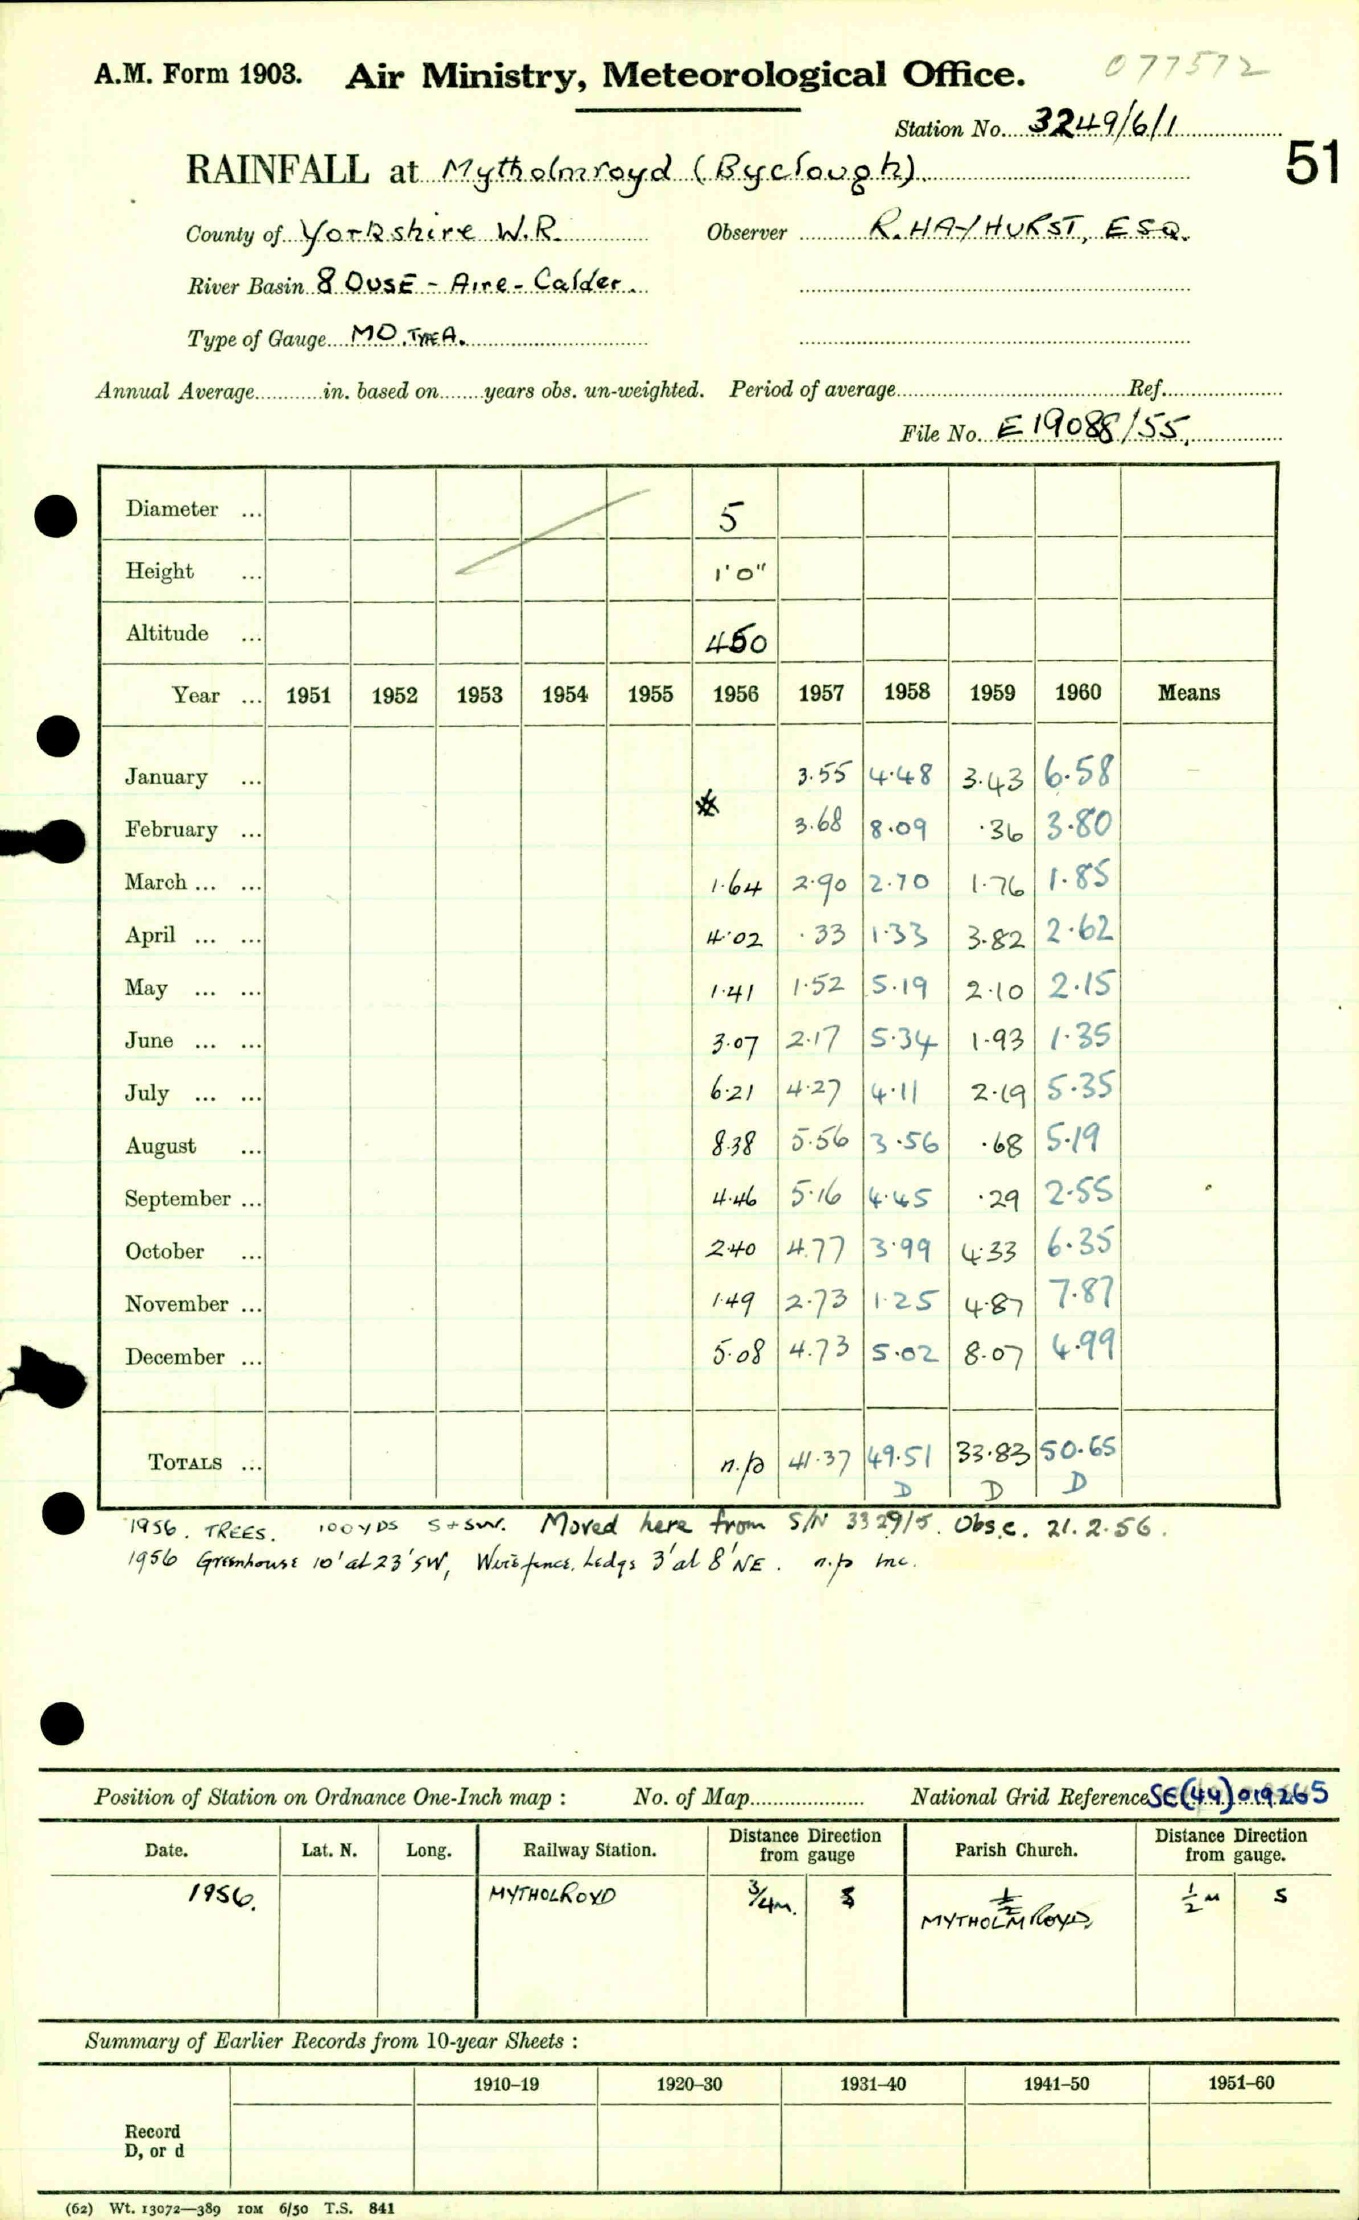 077572
A.M. Form 1903. Air Ministry, Meteorological Office.
Station No. 3249/6/1
51
RAINFALL at Mytholmroyd (Byclough).
County of Yorkshire W.R. Observer R. HAYHURST, ESQ.
River Basin 8 OUSE - Aire - Calder.
Type of Gauge MO. TYPE A.
Annual Average in. based on years obs. un-weighted. Period of average Ref.
File No. E19088/55.
Diameter ... 5
Height ... 1'0"
Altitude ... 450
Year ... 1951 1952 1953 1954 1955 1956 1957 1958 1959 1960 Means
January ... 3.55 4.48 3.43 6.58
February ... 3.68 8.09 .36 3.80
March ... ... 1.64 2.90 2.70 1.76 1.85
April ... ... 4.02 .33 1.33 3.82 2.62
May ... ... 1.41 1.52 5.19 2.10 2.15
June ... ... 3.07 2.17 5.34 1.93 1.35
July ... ... 6.21 4.27 4.11 2.19 5.35
August ... 8.38 5.56 3.56 .68 5.19
September ... 4.46 5.16 4.45 .29 2.55
October ... 2.40 4.77 3.99 4.33 6.35
November ... 1.49 2.73 1.25 4.87 7.87
December ... 5.08 4.73 5.02 8.07 4.99
TOTALS ... n.p 41.37 49.51 33.83 50.65
D D D
1956. TREES. 100 YDS S+SW. Moved here from S/N 3329/5. Obs.c. 21.2.56.
1956 Greenhouse 10' at 23' SW, Wire fence, hedge 3' at 8' NE. n.p inc.
Position of Station on Ordnance One-Inch map : No. of Map National Grid Reference SE(44)019265
Date. Lat. N. Long. Railway Station. Distance from Direction gauge Parish Church. Distance from Direction gauge.
1956. MYTHOLROYD 3/4m. S MYTHOLMROYD 1/2 M S
Summary of Earlier Records from 10-year Sheets :
1910–19 1920–30 1931–40 1941–50 1951–60
Record
D, or d
(62) Wt. 13072—389 10M 6/50 T.S. 841